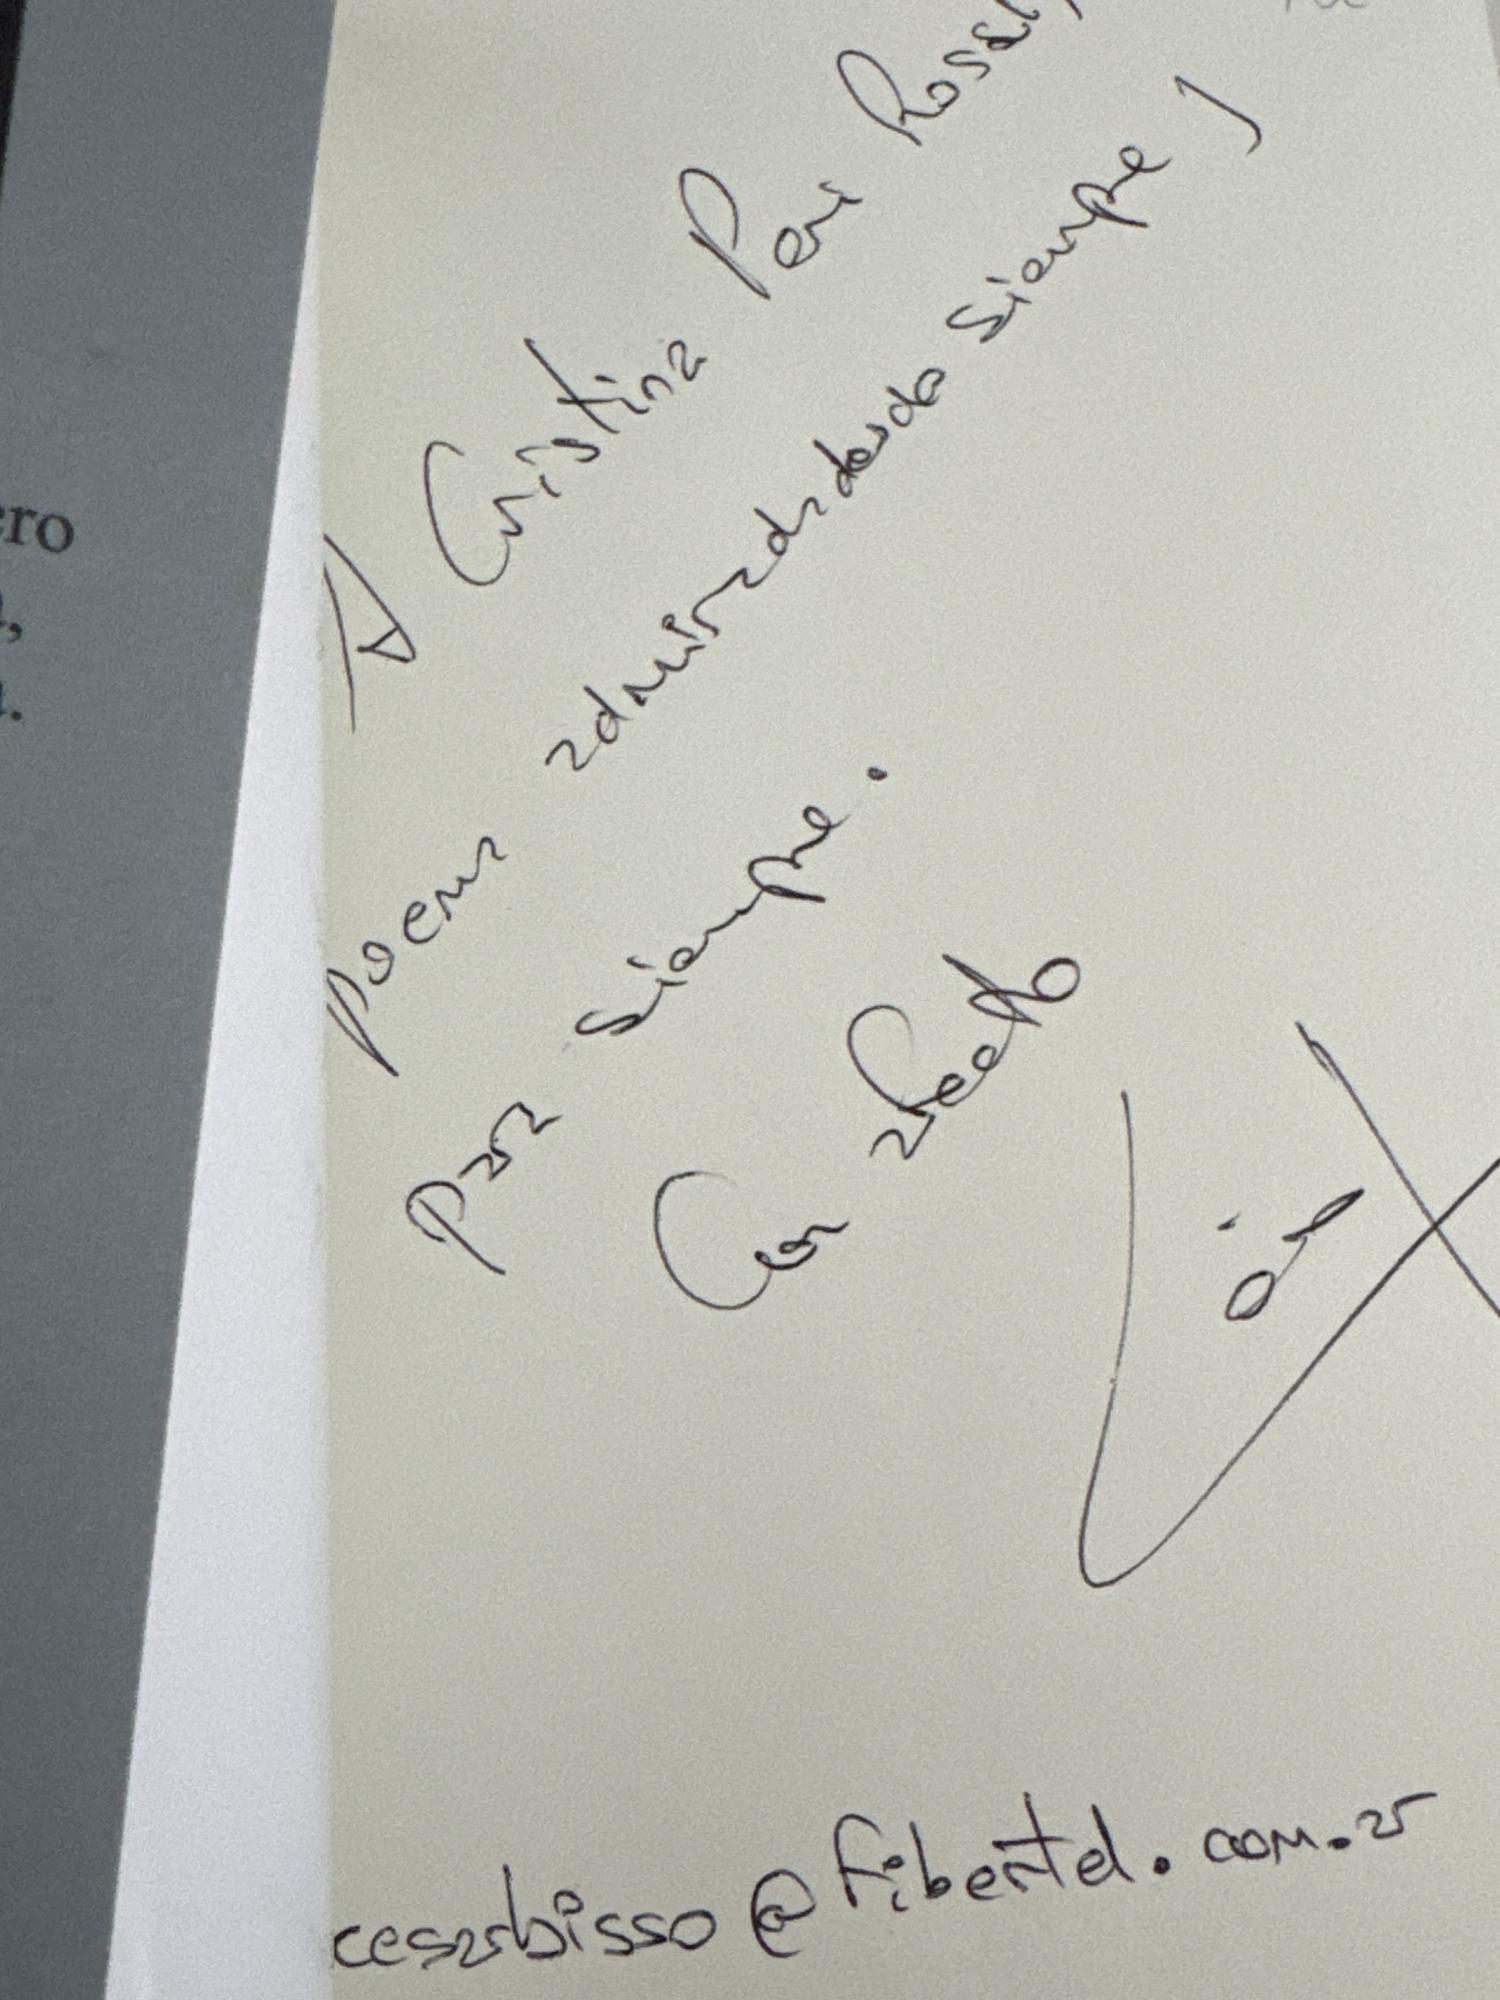 ero
A Cristina Peri Rossi,
poema admirada desde siempre y
para siempre.
Con afecto
cesarbisso@fibertel.com.ar